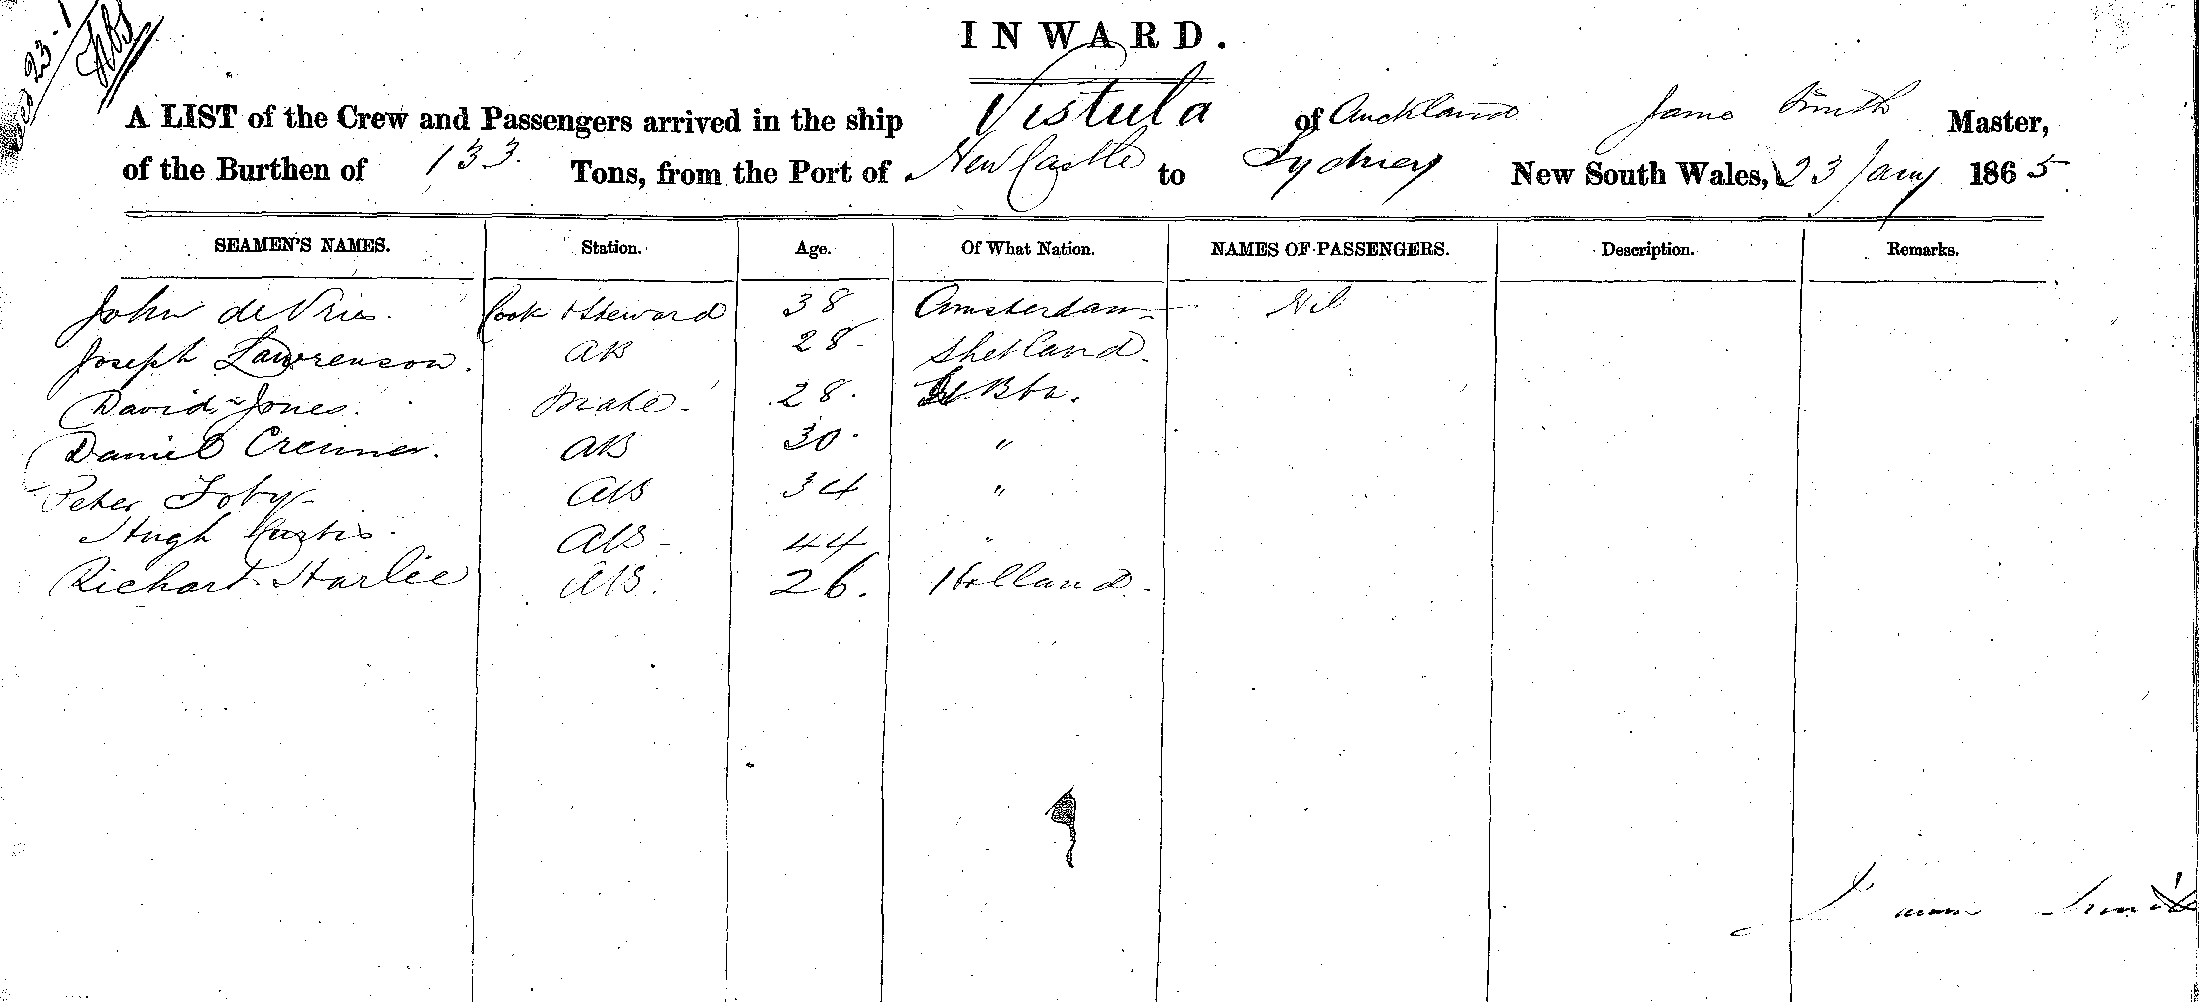 23-1
INWARD.
A LIST of the Crew and Passengers arrived in the ship Vistula of Auckland James Smith Master,
of the Burthen of 133 Tons, from the Port of New Castle to Sydney New South Wales, 23 Jany 1865
SEAMEN'S NAMES. Station. Age. Of What Nation. NAMES OF PASSENGERS. Description. Remarks.
John de Vries. Cook & Steward 38 Amsterdam Nil
Joseph Lawrenson. AB 28 Shetland.
David Jones. Mate. 28.
Daniel AB 30. "
Peter Toby AB 34 "
Hugh Curtis. AB 44 "
Richart Harlie AB. 26. Holland.
Smith